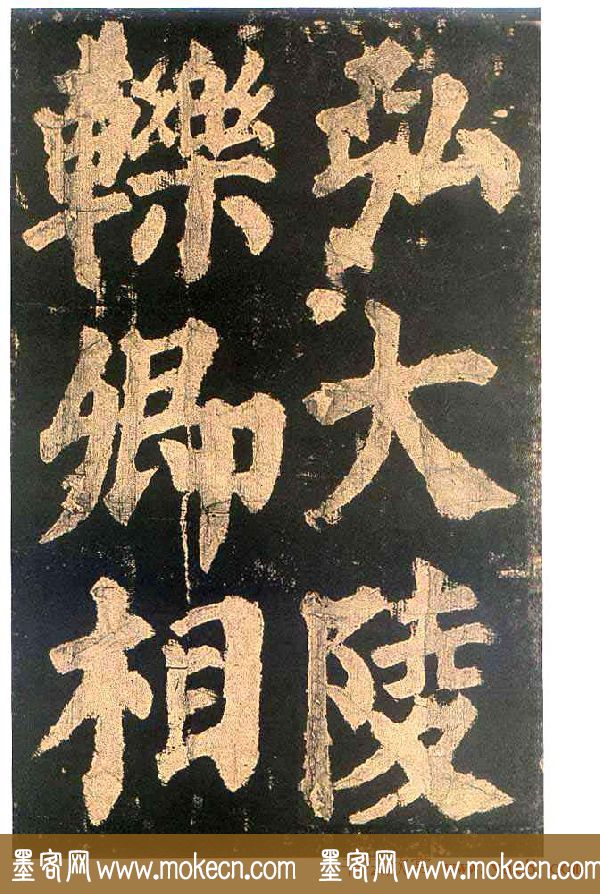 弘大陵
轢卿相
墨客网 www.mokecn.com 墨客网 www.mokecn.com